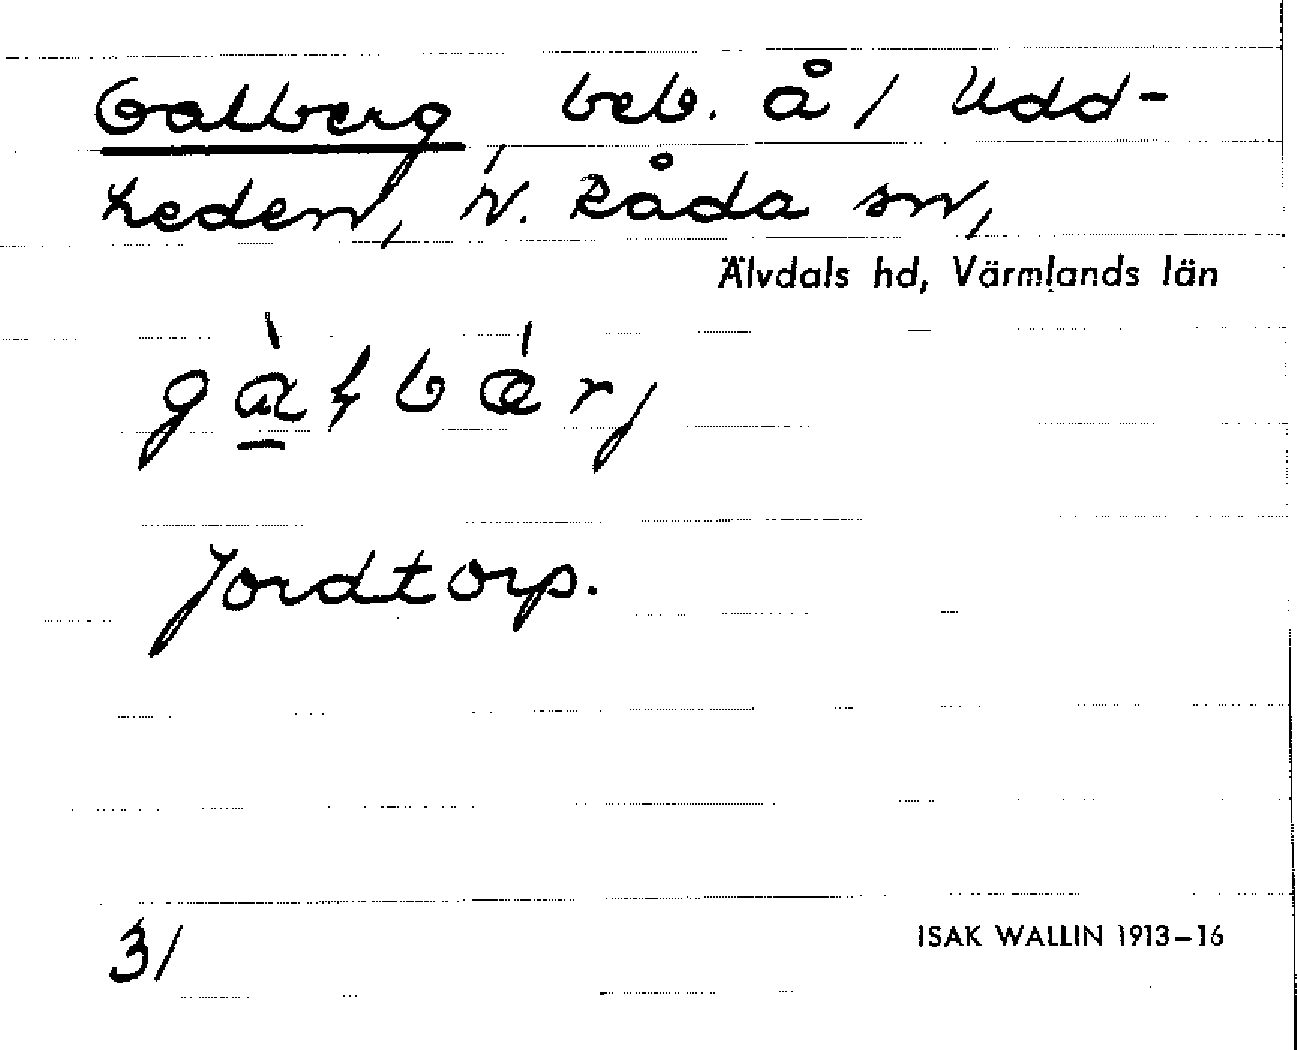 Galberg beb. å / Udd-
heden, N. Råda sn,
Älvdals hd, Värmlands län
gàɫbǽrj
Jordtorp.
3/
ISAK WALLIN 1913–16